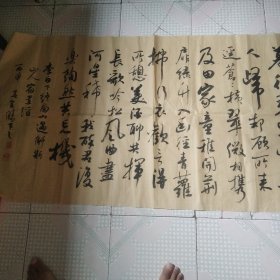 人归却顾所来
径苍苍横翠微相携
及田家童稚开荆
扉绿竹入幽径青萝
拂行衣欢言得
所憩美酒聊共挥
长歌吟松风曲尽
河星稀我醉君复
乐陶然共忘机
李白下终南山过斛斯
山人宿置酒